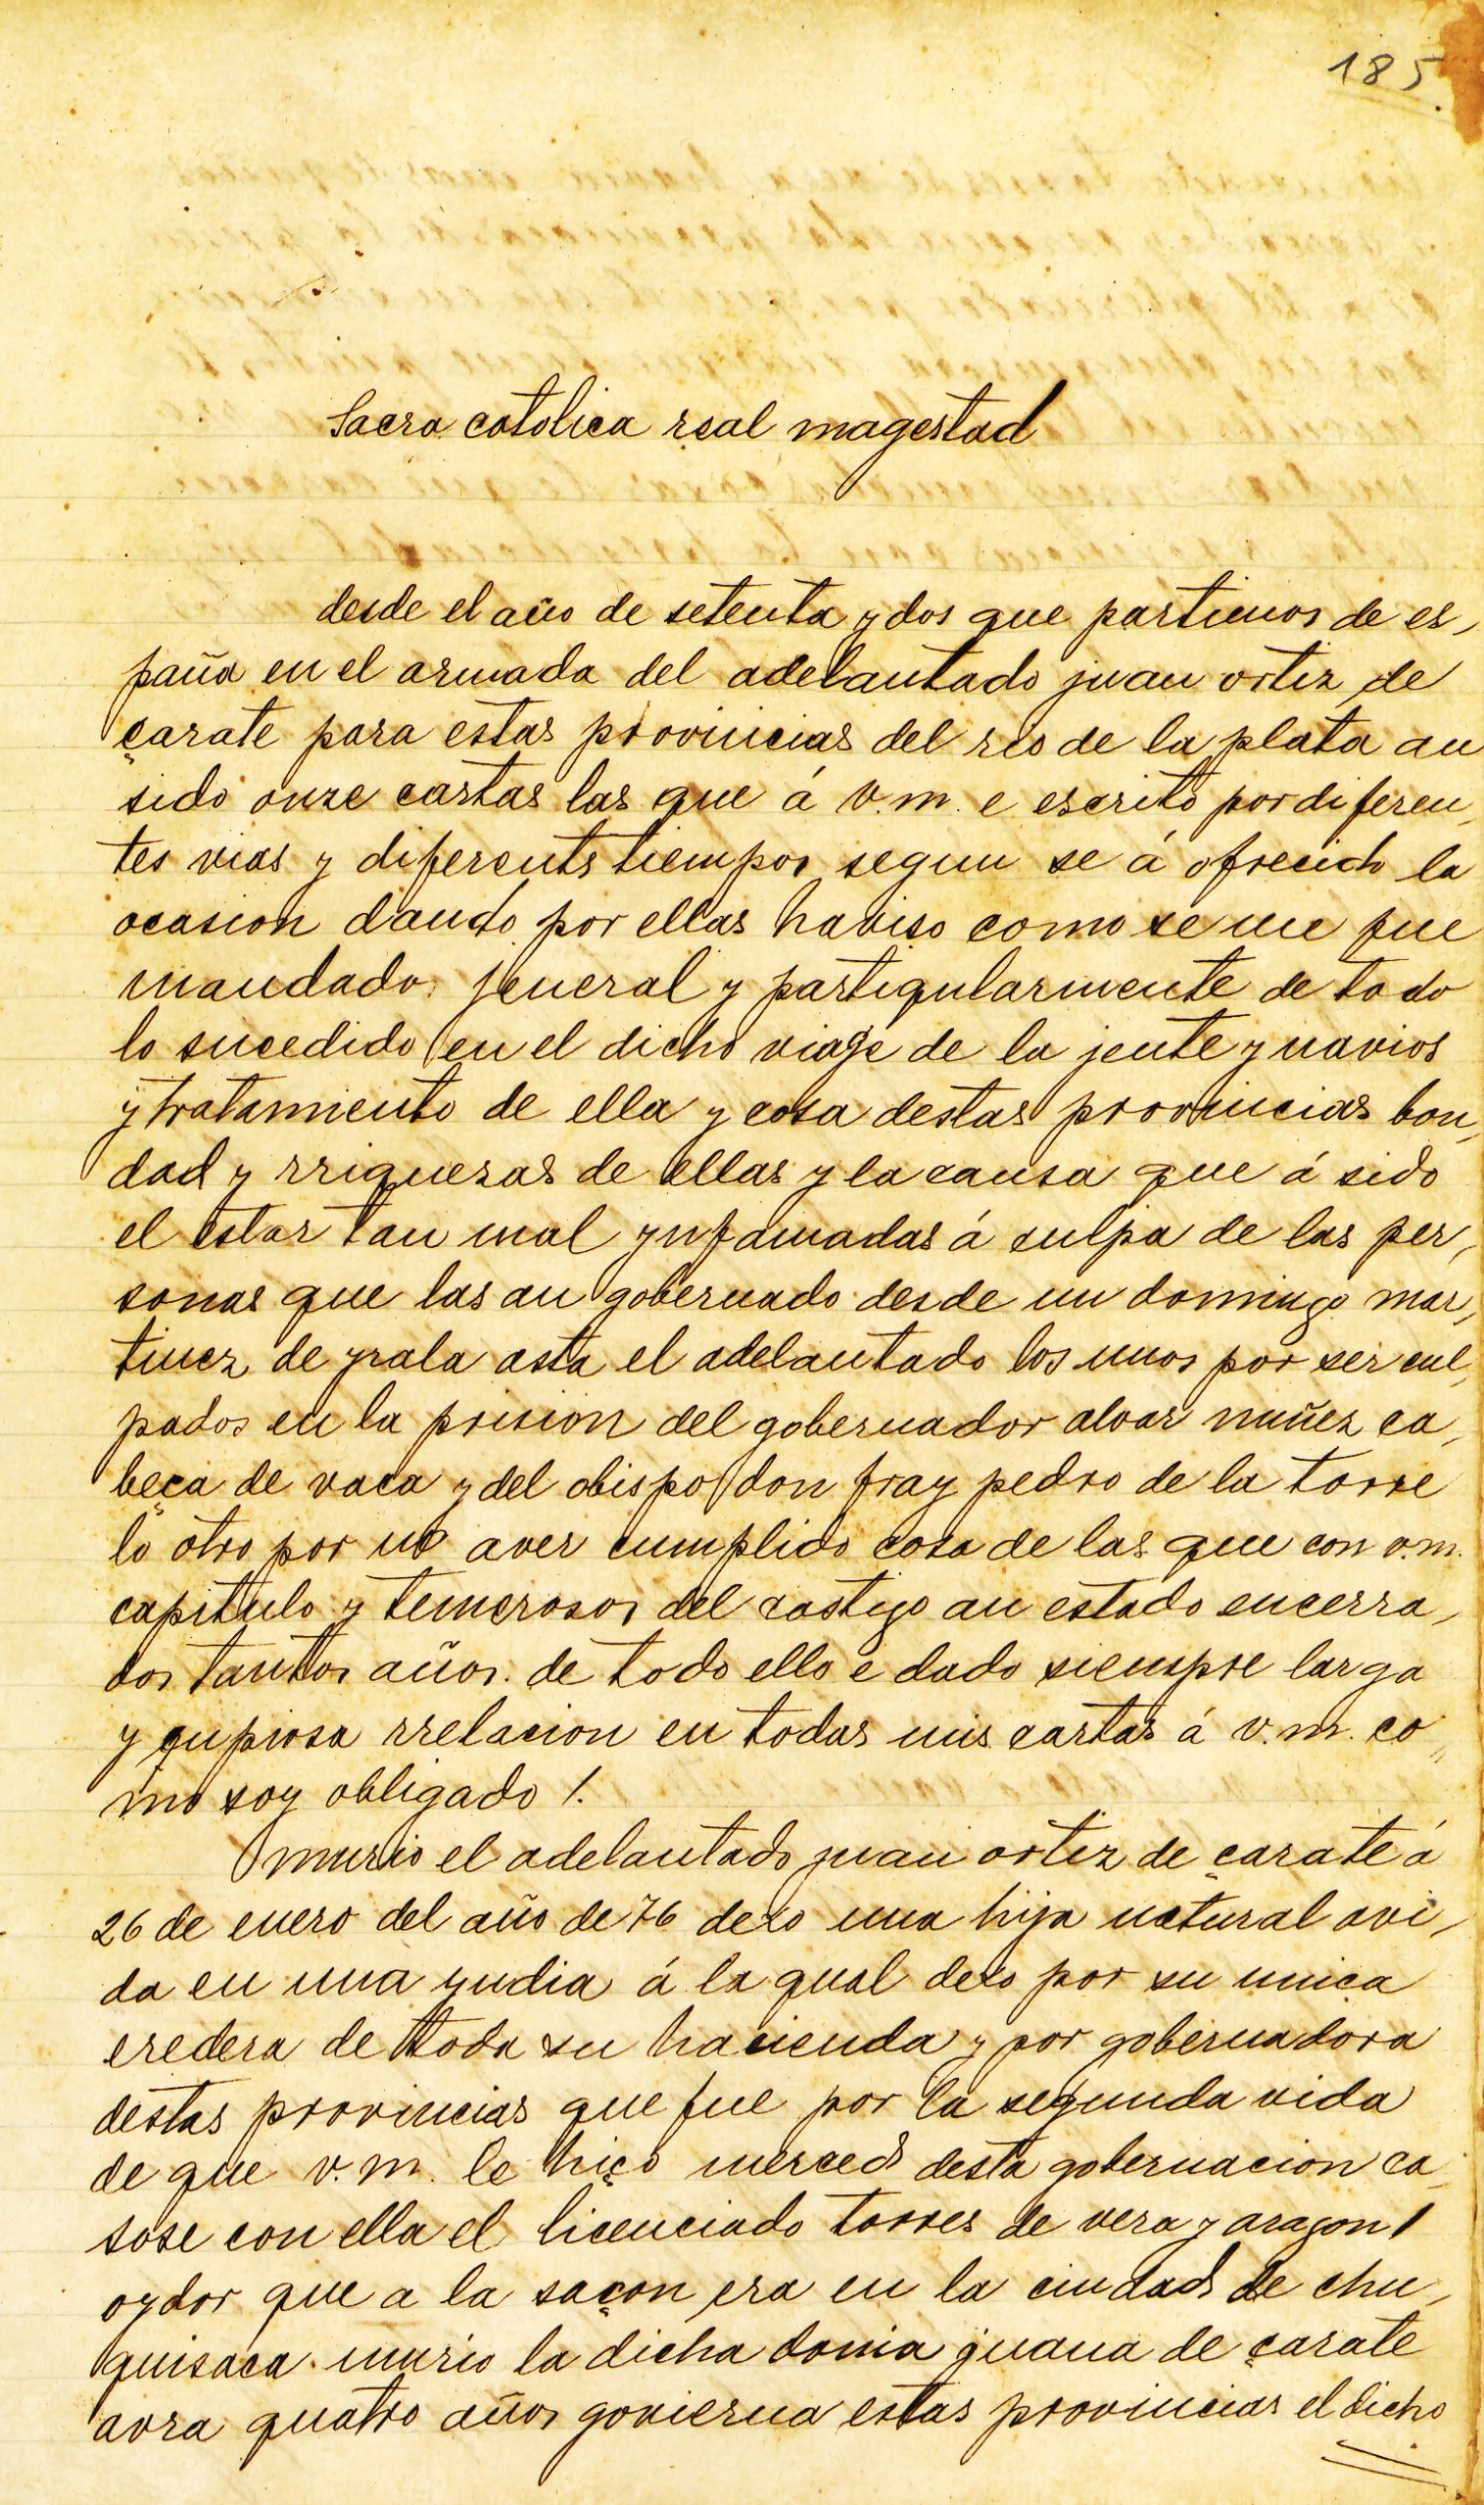 185.
Sacra catolica real magestad
desde el año de setenta y dos que partimos de es,
paña en el armada del adelantado juan ortiz de
çarate para estas provincias del rio de la plata an
sido onze cartas las que á v.m. e escrito por diferen,
tes vias y diferents tiempos segun se á ofrecido la
ocasion dando por ellas haviso como se me fue
mandado jeneral y partiqularmente de todo
lo sucedido en el dicho viaje de la jente y navios
y tratamiento de ella y cosa destas provincias bon,
dad y rriquezas de ellas y la causa que á sido
el estar tan mal ynfamadas á culpa de las per,
sonas que las an gobernado desde un domingo mar,
tinez de yrala asta el adelantado los unos por ser cul,
pados en la prision del gobernador alvar nuñez ca,
beça de vaca y del obispo don fray pedro de la torre
lo otro por no aver cumplido cosa de las que con v.m.
capitulo y temerosos del castigo an estado encerra,
dos tantos años. de todo ello e dado siempre larga
y qupiosa rrelacion en todas mis cartas á v.m. co,,
mo soy obligado /.
murio el adelantado juan ortiz de çarate á
26 de enero del año de 76 dexo una hija natural avi,
da en una yndia á la qual dexo por su unica
eredera de toda su hacienda y por gobernadora
destas provincias que fue por la segunda vida
de que v.m. le hiço merced desta gobernacion ca,
sose con ella el licenciado torres de vera y aragon /
oydor que a la saçon era en la ciudad de chu,
quisaca. murio la dicha donia juana de çarate
avra quatro años govierna estas provincias el dicho